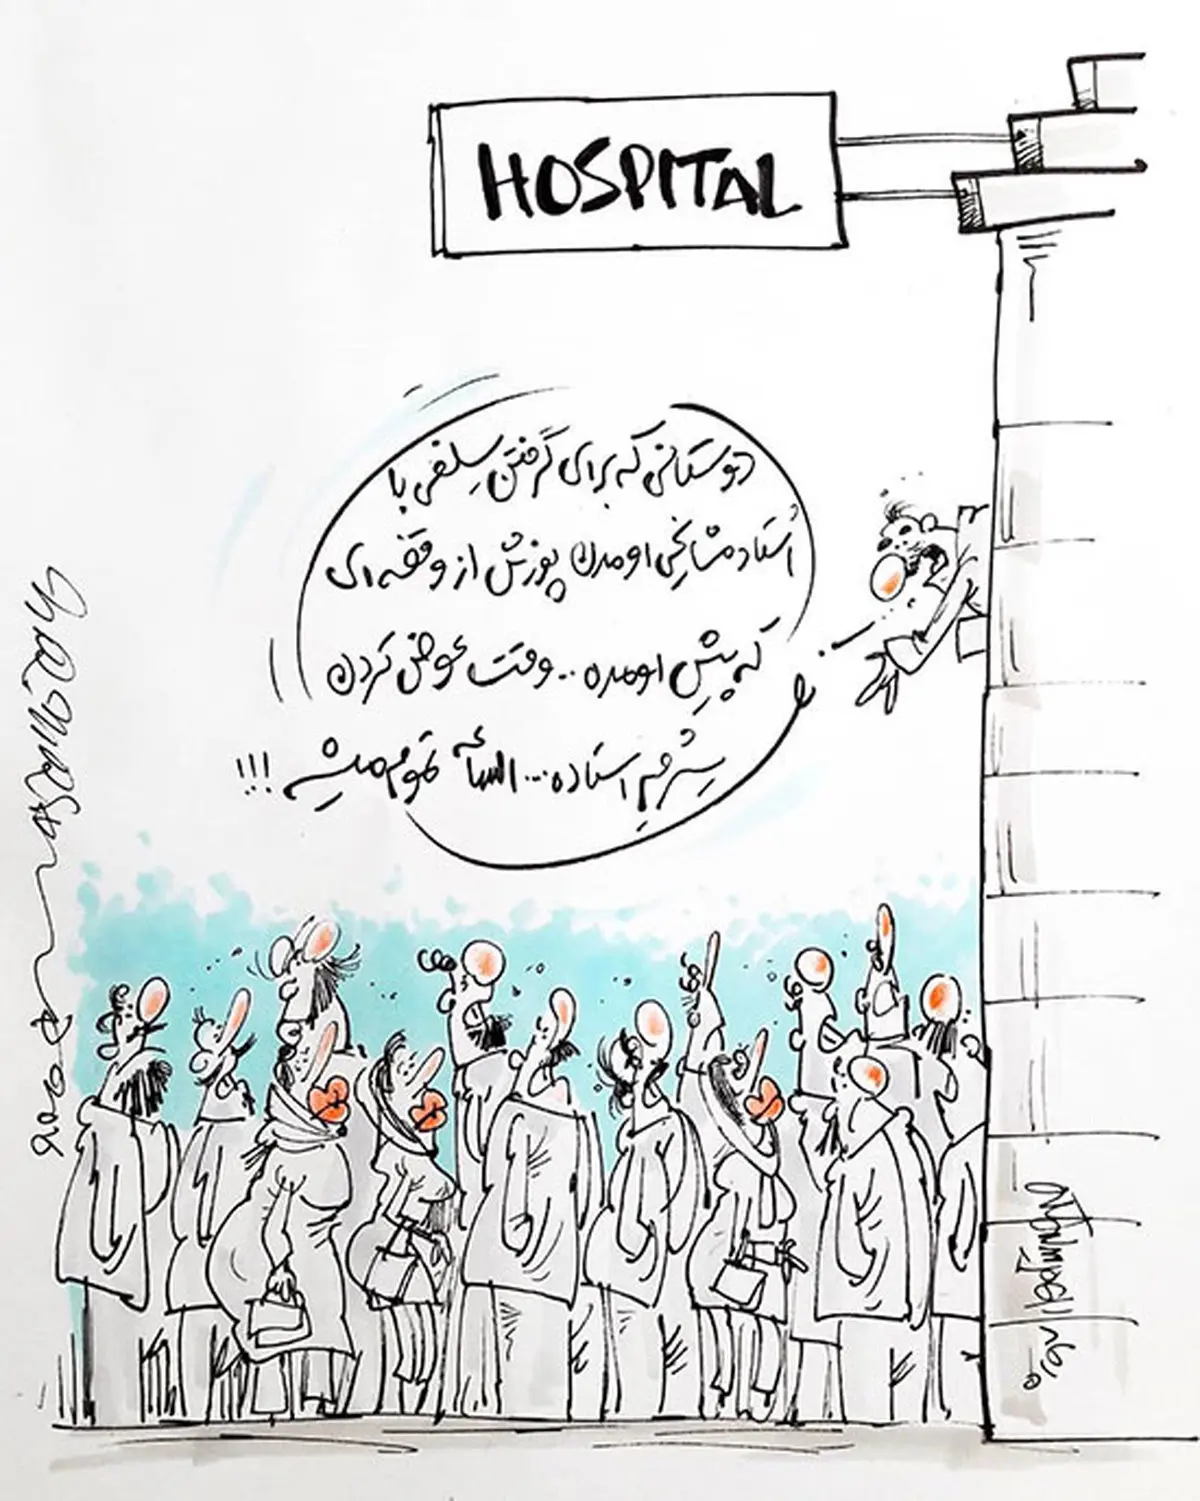 HOSPITAL
دوستانی که برای گرفتن سِلفی با
اُستاد مشایخی اومدن پوزش از وقفه ای
که پیش اومده .. وقت عوض کردن
سِرُمِ استاده ... الساعَه تموم میشه !!!